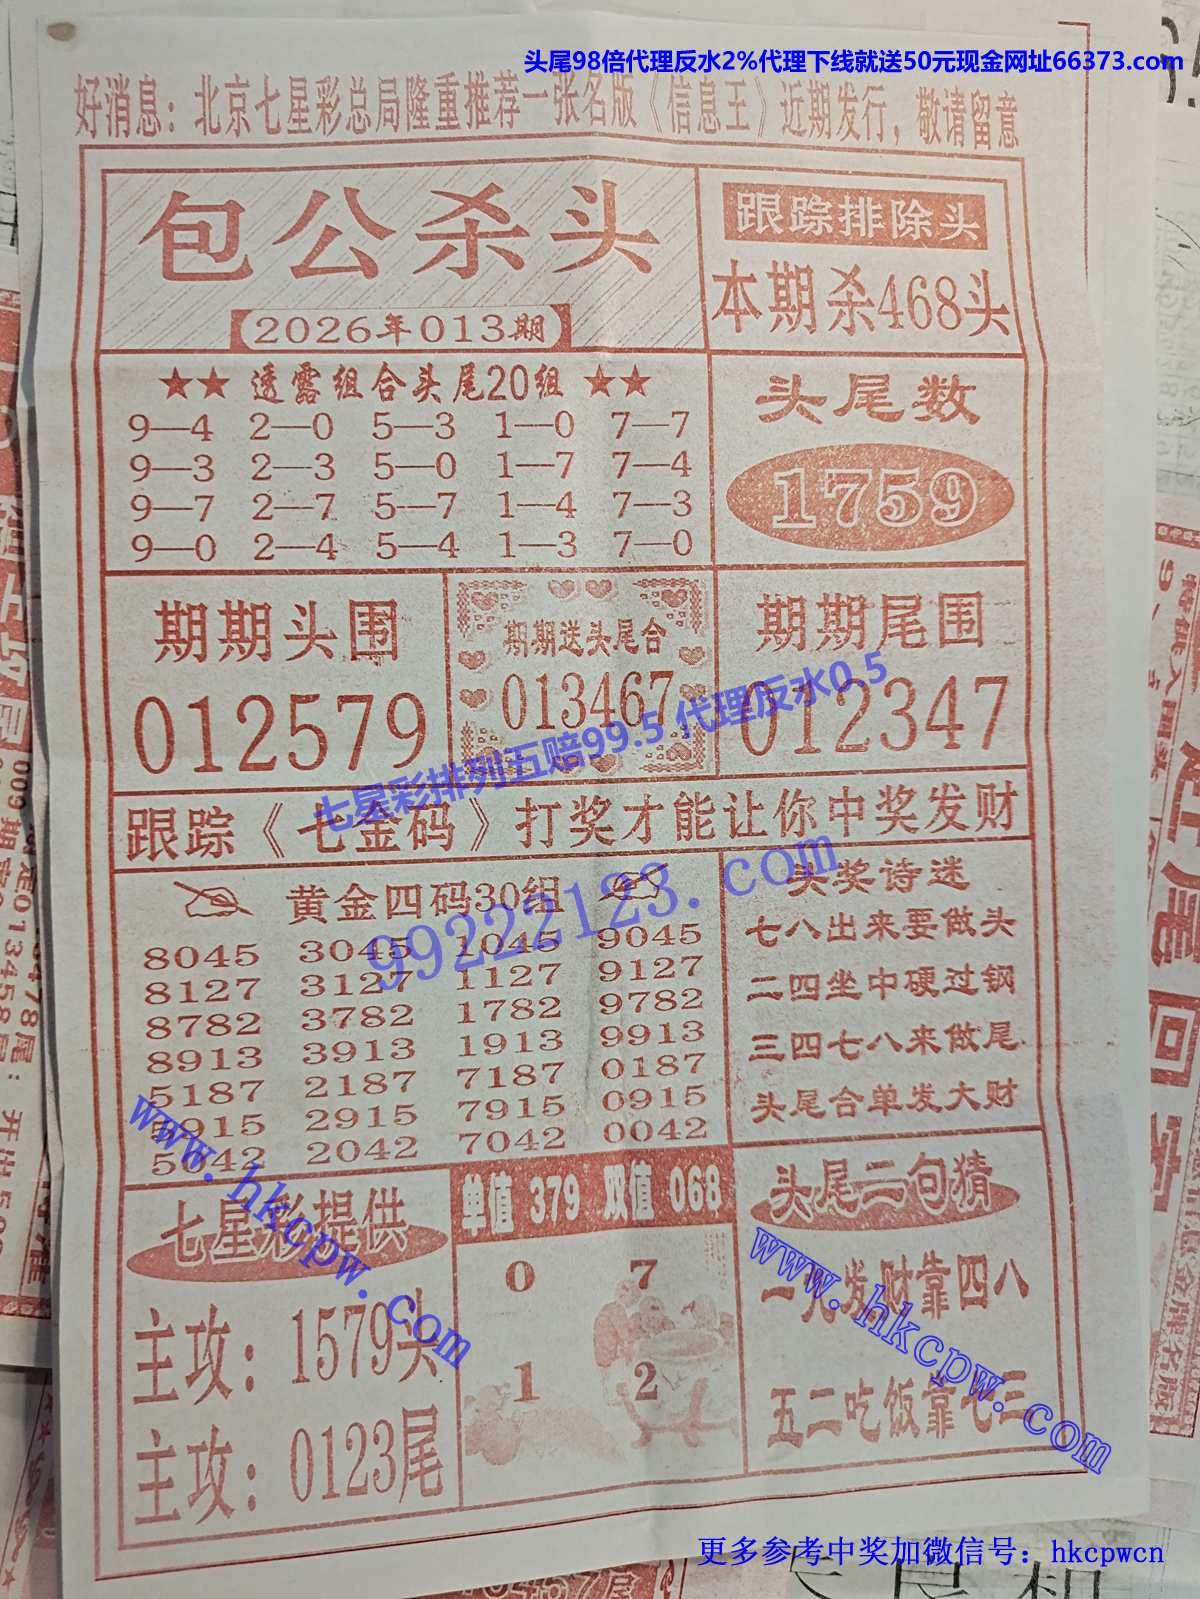 头尾98倍代理反水2%代理下线就送50元现金网址66373.com
好消息：北京七星彩总局隆重推荐一张名版《信息王》近期发行，敬请留意
包公杀头
2026年013期
跟踪排除头
本期杀468头
★★ 透露组合头尾20组 ★★
9—4 2—0 5—3 1—0 7—7
9—3 2—3 5—0 1—7 7—4
9—7 2—7 5—7 1—4 7—3
9—0 2—4 5—4 1—3 7—0
头尾数
1759
期期头围
012579
期期送头尾合
013467
期期尾围
012347
七星彩排列五赔99.5 代理反水0.5
跟踪《七金码》打奖才能让你中奖发财
99222123.com
黄金四码30组
8045 3045 1045 9045
8127 3127 1127 9127
8782 3782 1782 9782
8913 3913 1913 9913
5187 2187 7187 0187
5915 2915 7915 0915
5042 2042 7042 0042
头奖诗迷
七八出来要做头
二四坐中硬过钢
三四七八来做尾
头尾合单发大财
www.hkcpw.com
七星彩提供
主攻：1579头
主攻：0123尾
单值 379 双值 068
0 7
1 2
头尾二句猜
一元发财靠四八
五二吃饭靠七三
www.hkcpw.com
更多参考中奖加微信号：hkcpwcn